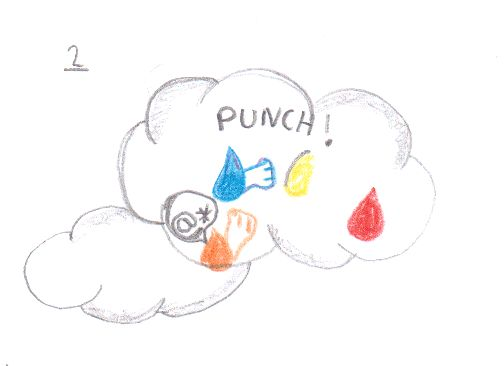 2
PUNCH!
@*